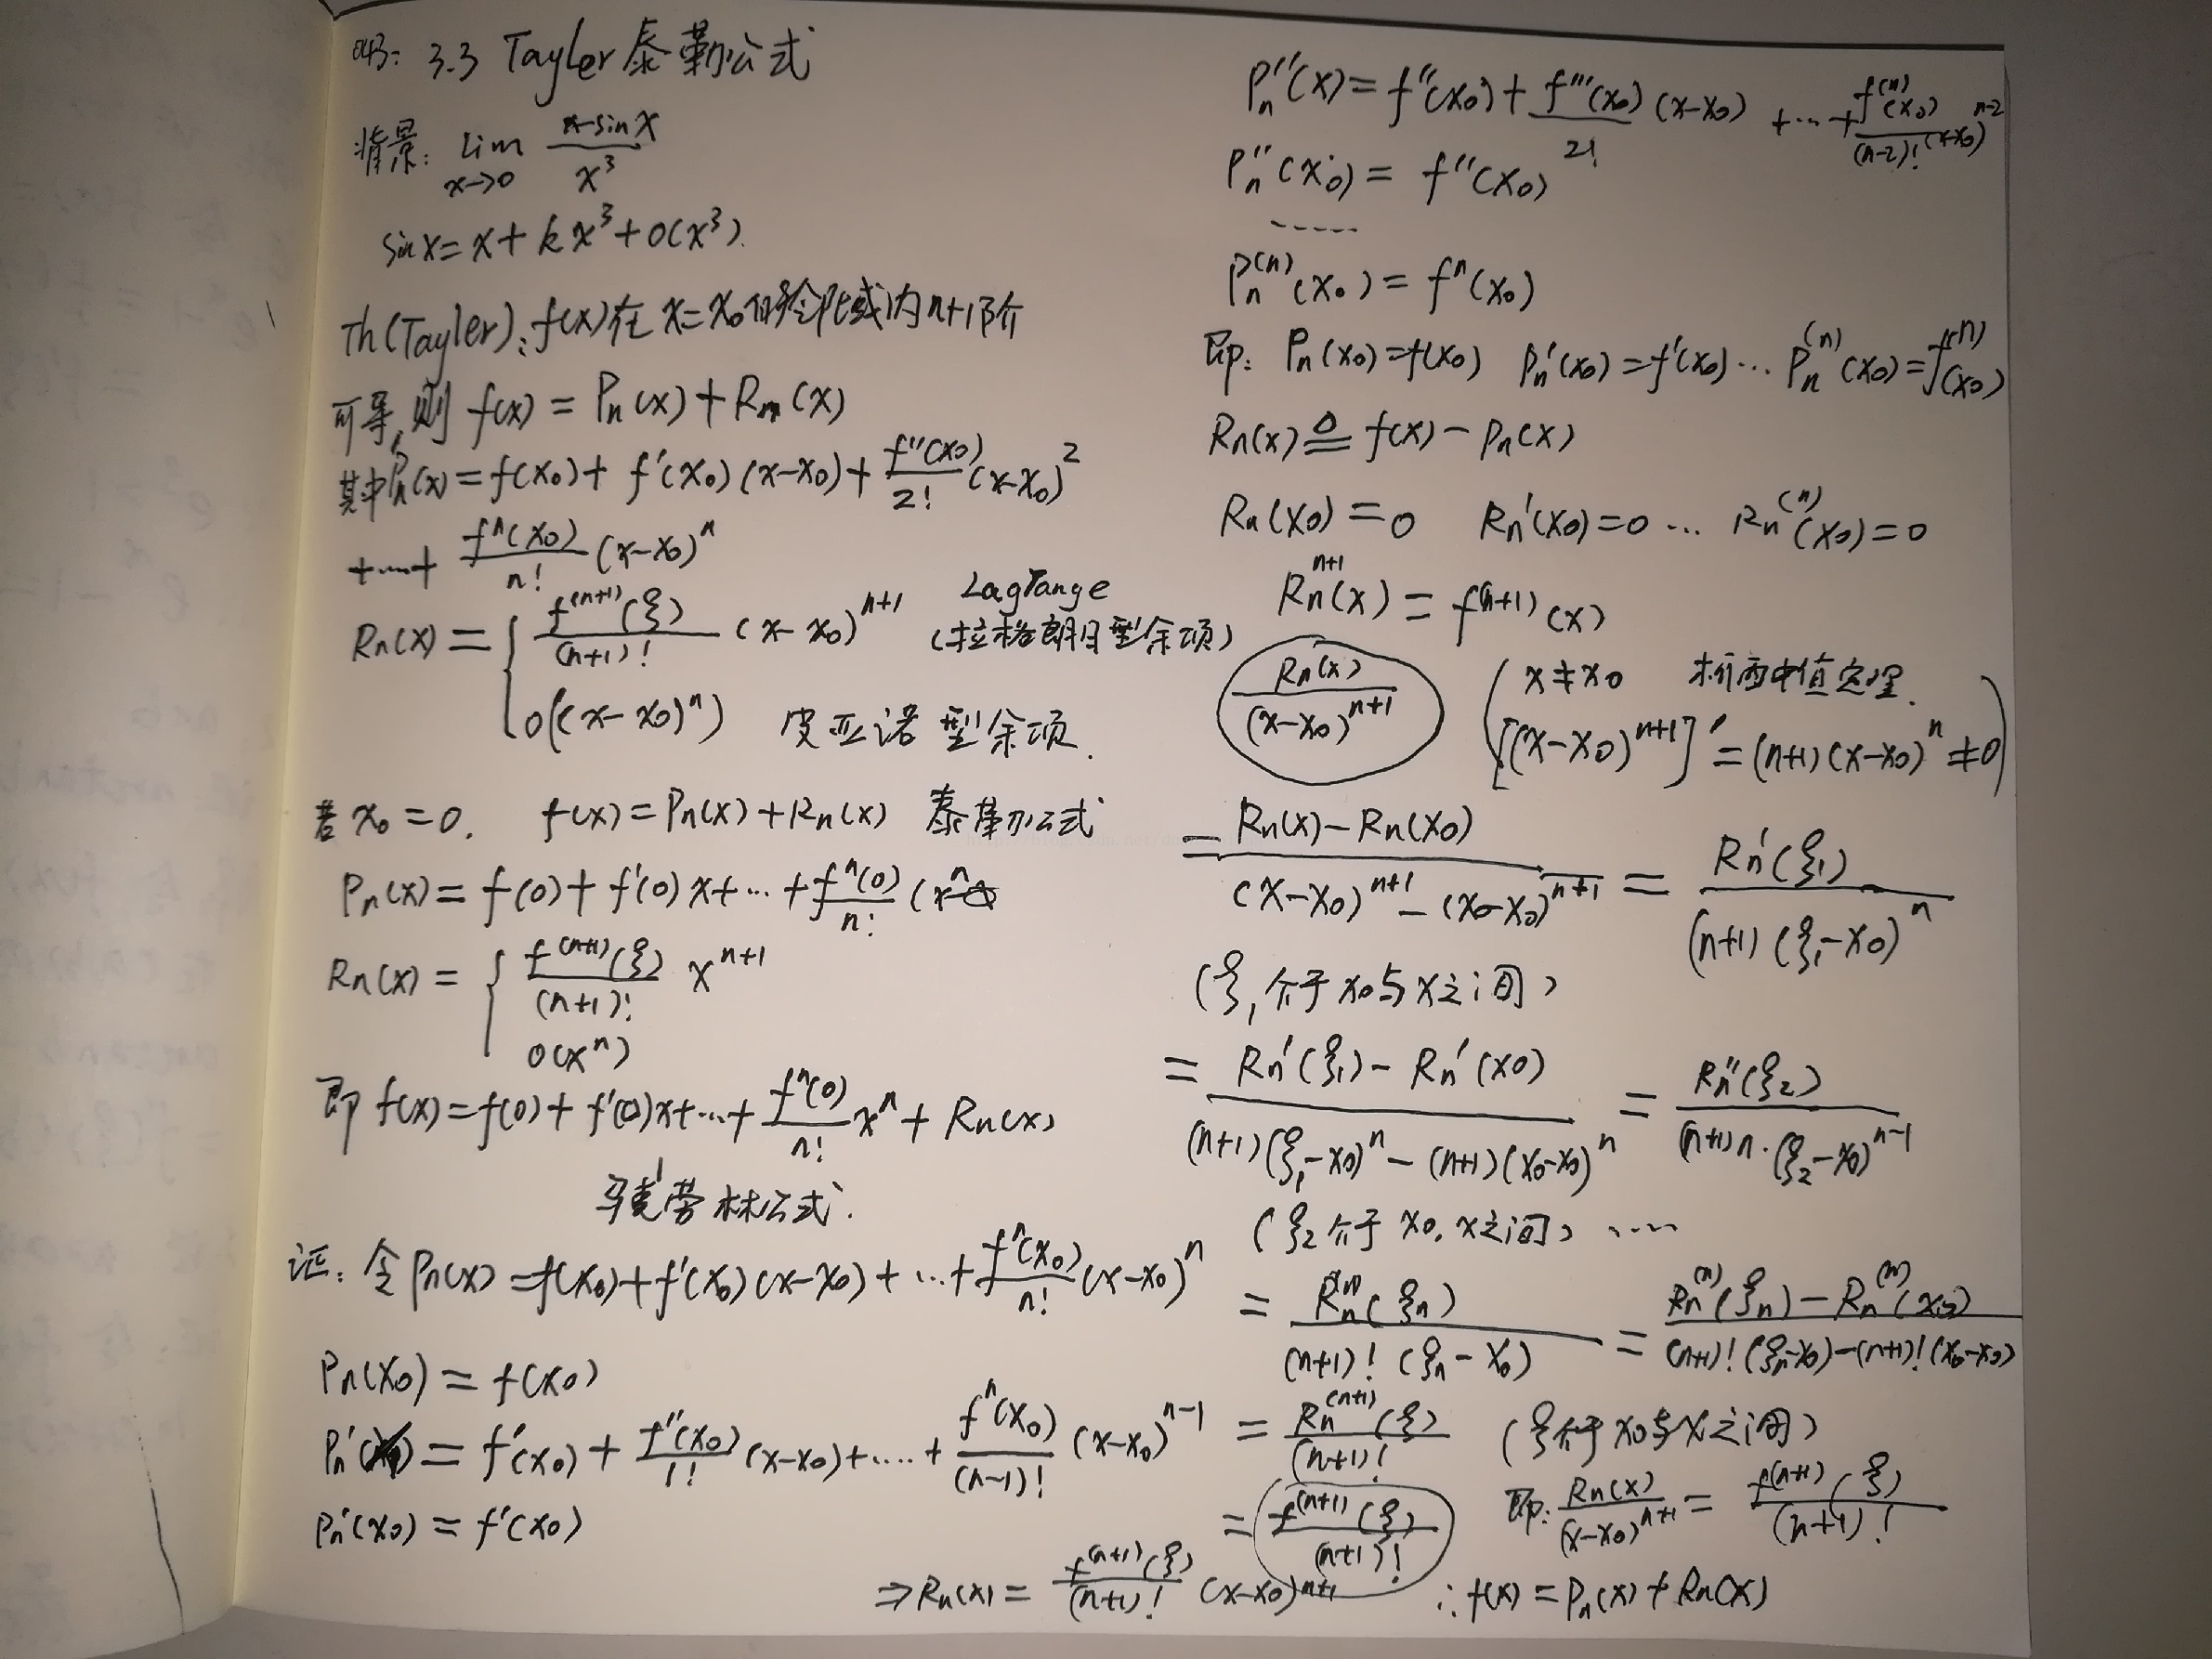 3.3 Tayler 泰勒公式
背景: lim x→0 (x-sinx)/x³
sinx = x + kx³ + o(x³).
Th(Tayler): f(x)在 x=x₀ 的邻域内n+1阶
可导,则 f(x) = Pn(x) + Rn(x)
其中Pn(x) = f(x₀) + f'(x₀)(x-x₀) + f''(x₀)/2! (x-x₀)²
+…+ fⁿ(x₀)/n! (x-x₀)ⁿ
Rn(x) = { f⁽ⁿ⁺¹⁾(ξ)/(n+1)! (x-x₀)ⁿ⁺¹ Lagrange (拉格朗日型余项)
o((x-x₀)ⁿ) 皮亚诺型余项.
若 x₀ = 0. f(x) = Pn(x) + Rn(x) 泰勒公式
Pn(x) = f(0) + f'(0)x + … + fⁿ(0)/n! (xⁿ
Rn(x) = { f⁽ⁿ⁺¹⁾(ξ)/(n+1)! xⁿ⁺¹
o(xⁿ)
即 f(x) = f(0) + f'(0)x + … + fⁿ(0)/n! xⁿ + Rn(x)
马克劳林公式.
证: 令Pn(x) = f(x₀) + f'(x₀)(x-x₀) + … + fⁿ(x₀)/n! (x-x₀)ⁿ
Pn(x₀) = f(x₀)
Pn'(x) = f'(x₀) + f''(x₀)/1! (x-x₀) + …. + fⁿ(x₀)/(n-1)! (x-x₀)ⁿ⁻¹
Pn'(x₀) = f'(x₀)
Pn''(x) = f''(x₀) + f'''(x₀)/2! (x-x₀) + … + f⁽ⁿ⁾(x₀)/(n-2)! (x-x₀)ⁿ⁻²
Pn''(x₀) = f''(x₀)
-----
Pn⁽ⁿ⁾(x₀) = fⁿ(x₀)
即: Pn(x₀) = f(x₀) Pn'(x₀) = f'(x₀) … Pn⁽ⁿ⁾(x₀) = f⁽ⁿ⁾(x₀)
Rn(x) ≜ f(x) - Pn(x)
Rn(x₀) = 0 Rn'(x₀) = 0 … Rn⁽ⁿ⁾(x₀) = 0
Rnⁿ⁺¹(x) = f⁽ⁿ⁺¹⁾(x)
Rn(x)/(x-x₀)ⁿ⁺¹ ( x≠x₀ 柯西中值定理.
[(x-x₀)ⁿ⁺¹]' = (n+1)(x-x₀)ⁿ ≠ 0 )
= (Rn(x) - Rn(x₀))/((x-x₀)ⁿ⁺¹ - (x₀-x₀)ⁿ⁺¹) = Rn'(ξ₁)/((n+1)(ξ₁-x₀)ⁿ)
(ξ₁介于x₀与x之间)
= (Rn'(ξ₁) - Rn'(x₀))/((n+1)(ξ₁-x₀)ⁿ - (n+1)(x₀-x₀)ⁿ) = Rn''(ξ₂)/((n+1)n·(ξ₂-x₀)ⁿ⁻¹)
(ξ₂介于 x₀, x之间) ……
= Rn⁽ⁿ⁾(ξn)/((n+1)!(ξn-x₀)) = (Rn⁽ⁿ⁾(ξn) - Rn⁽ⁿ⁾(x₀))/((n+1)!(ξn-x₀) - (n+1)!(x₀-x₀))
= Rn⁽ⁿ⁺¹⁾(ξ)/(n+1)! (ξ介于x₀与x之间)
= f⁽ⁿ⁺¹⁾(ξ)/(n+1)! 即: Rn(x)/(x-x₀)ⁿ⁺¹ = f⁽ⁿ⁺¹⁾(ξ)/(n+1)!
⇒ Rn(x) = f⁽ⁿ⁺¹⁾(ξ)/(n+1)! (x-x₀)ⁿ⁺¹ ∴ f(x) = Pn(x) + Rn(x)